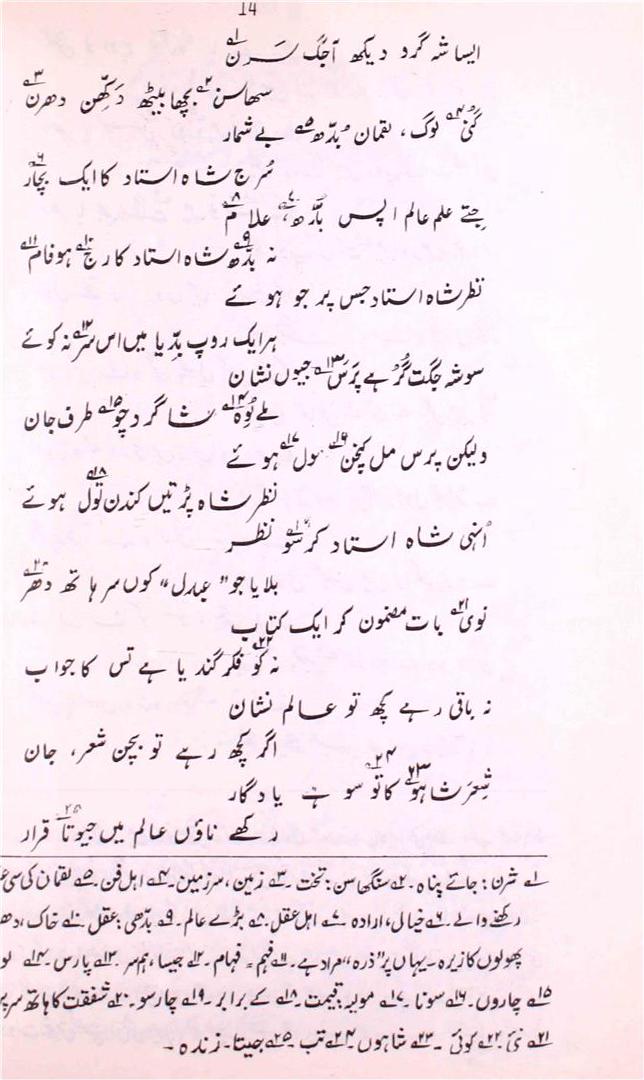 14
ایسا شہ گرد دیکھ آ جگ سَرن۱
سنھاسن۲ بچھا بیٹھ دَکھّن دھرن۳
گنی۴ لوگ، لقمان بُدّھ۵ بے شمار
سُرج شاہ استاد کا ایک بچار۶
جتے علم عالم اپس بُدّھ۷، علام۸
نہ بُدّھ۹ شاہ استاد کا رج۱۰ ہو فام۱۱
نظر شاہ استاد جس پر جو ہوئے
ہر ایک روپ بِدّیا میں اس سَر۱۲ نہ کوئے
سو شہ جگت گُرو ہے پرَس۱۳ جیوں نشان
ملے لُوہ۱۴ شاگرد چو۱۵ طرف جان
ولیکن پرس مل کنچن۱۶ مول۱۷ ہوئے
نظر شاہ پڑتیں کندن تول۱۸ ہوئے
اُنہی شاہ استاد کر سُو۱۹ نظر
بلایا جو "عبدل" کوں سر ہاتھ دھر۲۰
نوی۲۱ بات مضمون کر ایک کتاب
نہ کو۲۲ فکر گندیا ہے تس کا جواب
نہ باقی رہے کچھ تو عالم نشان
اگر کچھ رہے تو بچن شعر، جان
شِعرَ شاہو۲۳ کا تو۲۴ سو ہے یادگار
رکھے ناؤں عالم میں جیوتا۲۵ قرار
۱ شرن: جائے پناہ ۔ ۲ سنگھی سن: تخت ۔ ۳ زمین، سرزمین ۔ ۴ اہل فن ۔ ۵ لقمان کی سی
رکھنے والے ۔ ۶ خیالی، ارادہ ۔ ۷ اہل عقل ۔ ۸ بڑے عالم ۔ ۹ بدّھی: عقل ۔ ۱۰ خاک،
پھولوں کا زیرہ ۔ یہاں پر "ذرہ" مراد ہے ۔ ۱۱ فہم = فہام ۔ ۱۲ جیسا، ہم سر ۔ ۱۳ پارس ۔ ۱۴
۱۵ چاروں ۔ ۱۶ سونا ۔ ۱۷ مویر، قیمت ۔ ۱۸ کے برابر ۔ ۱۹ چارسو ۔ ۲۰ شفقت کا ہاتھ سر پر
۲۱ نئی ۔ ۲۲ کوئی ۔ ۲۳ شاہوں ۔ ۲۴ تب ۔ ۲۵ جیتا ۔ زندہ ۔